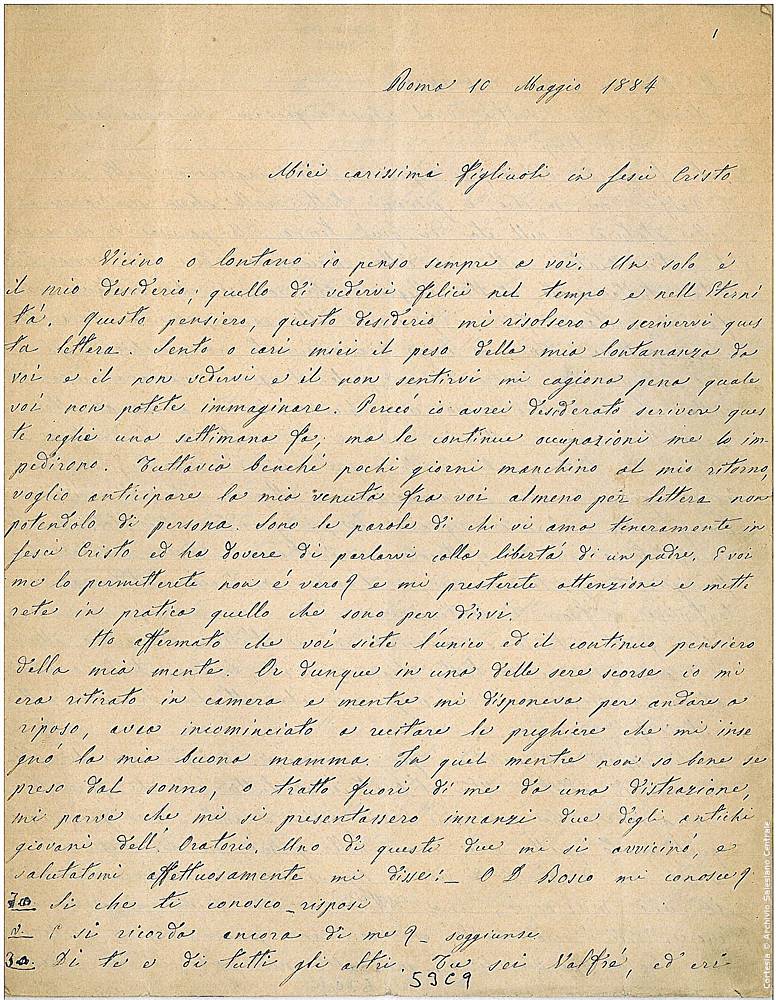 1
Roma 10 Maggio 1884
Miei carissimi figliuoli in Gesù Cristo
Vicino o lontano io penso sempre a voi. Un solo è
il mio desiderio; quello di vedervi felici nel tempo e nell'Eterni
tà. Questo pensiero, questo desiderio mi risolsero a scrivervi ques
ta lettera. Sento o cari miei il peso della mia lontananza da
voi e il non vedervi e il non sentirvi mi cagiona pena quale
voi non potete immaginare. Perciò io avrei desiderato scrivere ques
te righe una settimana fa; ma le continue occupazioni me lo im-
pedirono. Tuttavia benché pochi giorni manchino al mio ritorno,
voglio anticipare la mia venuta fra voi almeno per lettera non
potendolo di persona. Sono le parole di chi vi ama teneramente in
Gesù Cristo ed ha dovere di parlarvi colla libertà di un padre. E voi
me lo permetterete non è vero? e mi presterete attenzione e mette
rete in pratica quello che sono per dirvi.
Ho affermato che voi siete l'unico ed il continuo pensiero
della mia mente. Or dunque in una delle sere scorse io mi
era ritirato in camera e mentre mi disponeva per andare a
riposo, avea incominciato a recitare le preghiere che mi inse
gnò la mia buona mamma. In quel mentre non so bene se
preso dal sonno, o tratto fuori di me da una distrazione,
mi parve che mi si presentassero innanzi due degli antichi
giovani dell'Oratorio. Uno di questi due mi si avvicinò, e
salutatomi affettuosamente mi disse: - O D Bosco mi conosce?
Si che ti conosco - risposi
E si ricorda ancora di me? - soggiunse
Di te e di tutti gli altri. Tu sei Valfré, ed eri
S3C9
Cortesia © Archivio Salesiano Centrale